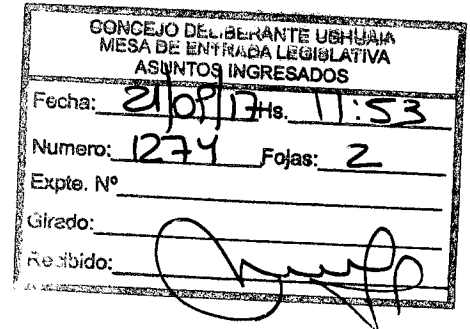 CONCEJO DELIBERANTE USHUAIA
MESA DE ENTRADA LEGISLATIVA
ASUNTOS INGRESADOS
Fecha: 21/09/17 Hs. 11:53
Numero: 1274 Fojas: 2
Expte. Nº
Girado:
Recibido: